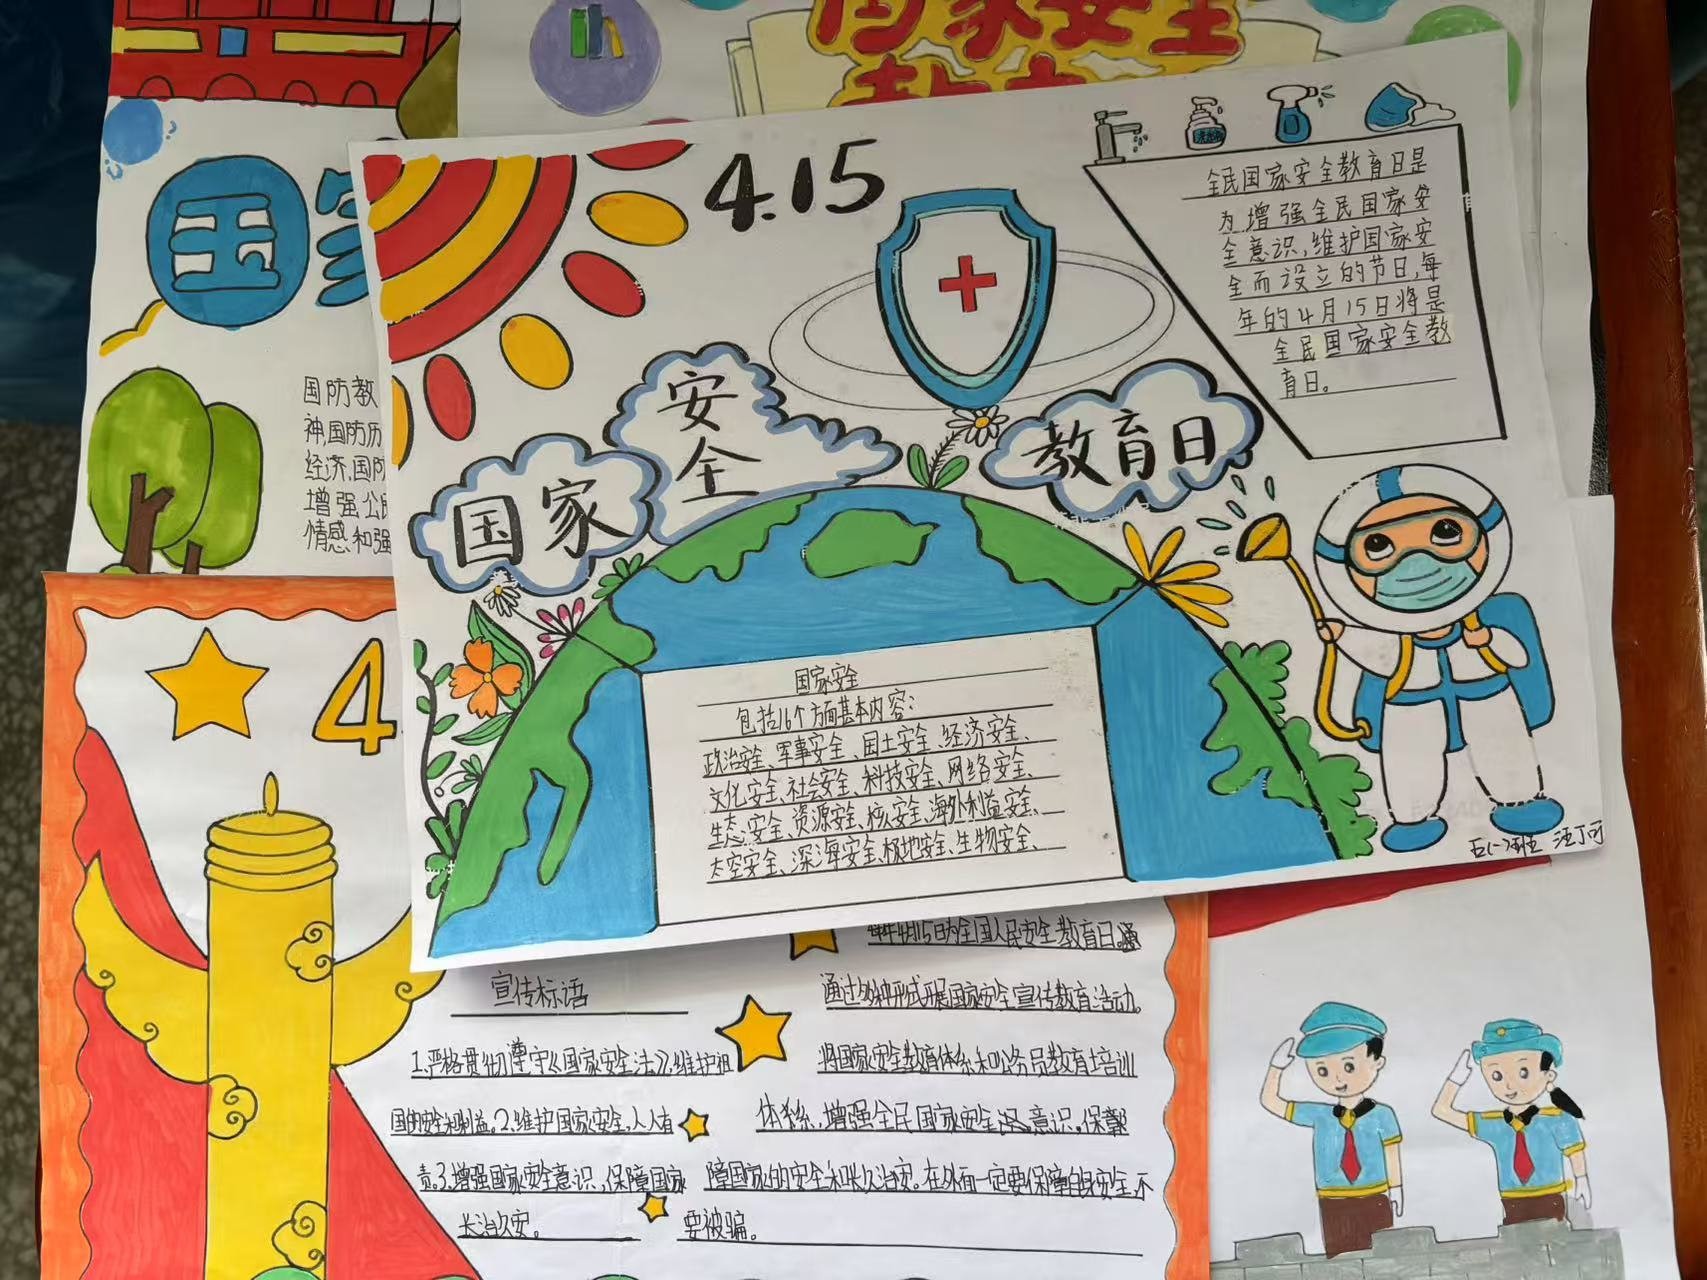 国家安全
国家
国防教
神,国防历
经济,国防
增强公民
情感和强
4.15
全民国家安全教育日是
为增强全民国家安
全意识,维护国家安
全而设立的节日,每
年的4月15日将是
全民国家安全教
育日。
国家
安全
教育日
国家安全
包括16个方面基本内容:
政治安全、军事安全、国土安全、经济安全、
文化安全、社会安全、科技安全、网络安全、
生态安全、资源安全、核安全、海外利益安全、
太空安全、深海安全、极地安全、生物安全、
五(一)班 汪丁可
4
宣传标语
1.严格贯彻遵守《国家安全法》,维护祖
国的安全和利益。2.维护国家安全,人人有
责。3.增强国家安全意识,保障国家
长治久安。
每年4月15日为全国人民安全教育日。
通过多种形式开展国家安全宣传教育活动。
将国家安全教育体系和公务员教育培训
体系,增强全民国家安全意识。保
障国家的安全和长久治安。在外面一定要保障自身安全,不
要被骗。